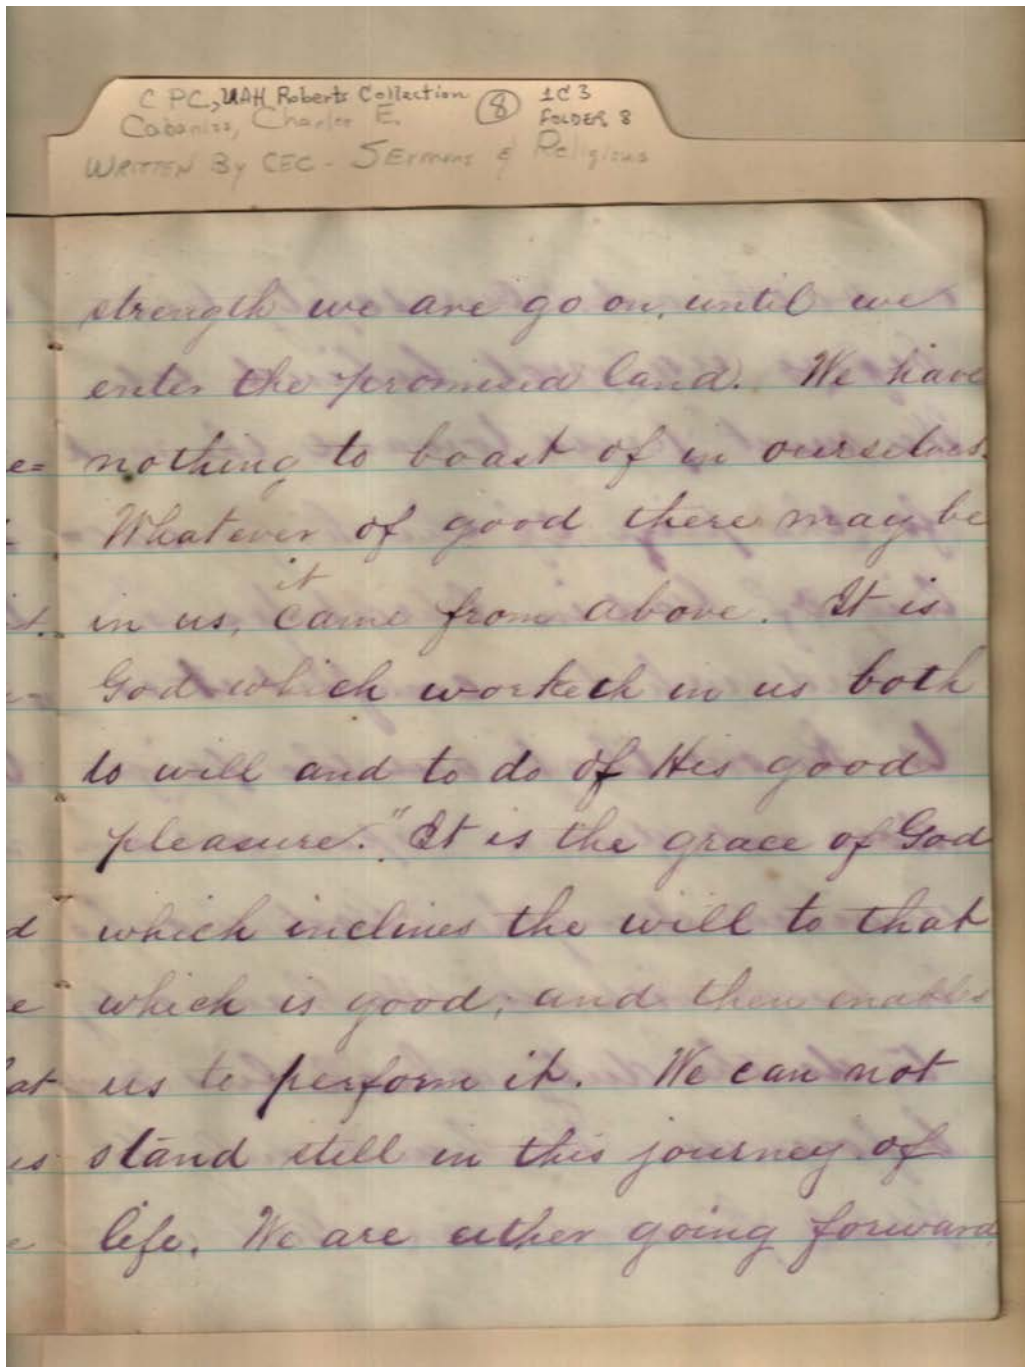 C PC, UAH Roberts Collection (8) 1C3
Cabaniss, Charles E. FOLDER 8
WRITTEN By CEC - SErmons & Religious
strength we are go on, until we
enter the promised land. We have
e= nothing to boast of in ourselves.
Whatever of good there may be
it
t. in us, came from above. It is
God which worketh in us both
to will and to do of His good
pleasure." It is the grace of God
d which inclines the will to that
e which is good; and then enables
at us to perform it. We can not
is stand still in this journey of
e life. We are either going forward